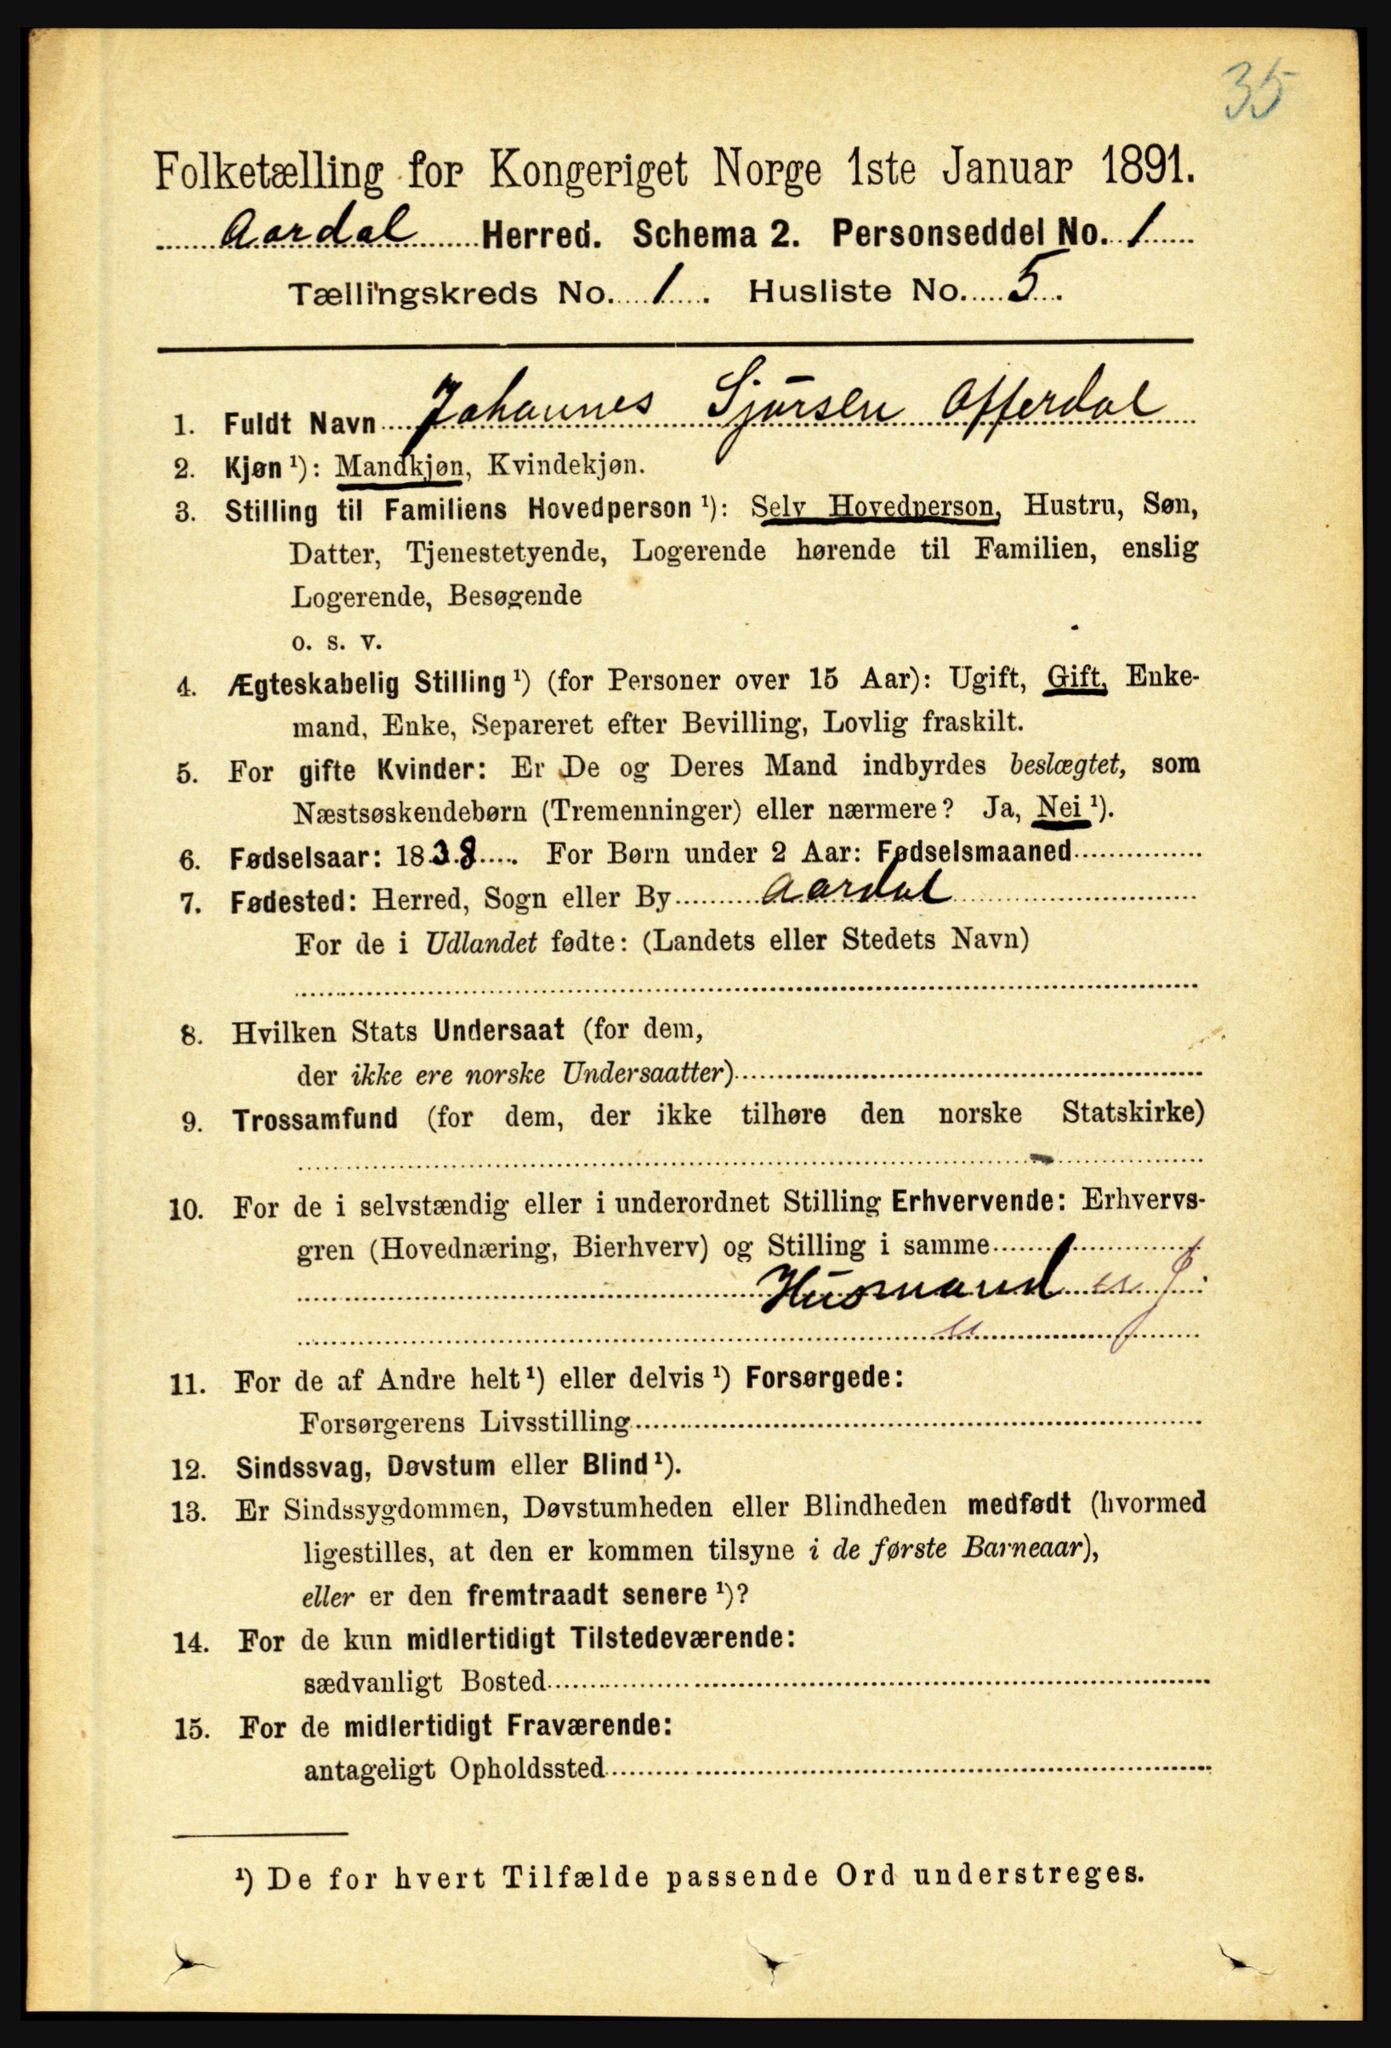 35
Folketælling for Kongeriget Norge 1ste Januar 1891.
Aardal Herred. Schema 2. Personseddel No. 1
Tællingskreds No. 1. Husliste No. 5.
1. Fuldt Navn Johannes Sjursen Offerdal
2. Kjøn ¹): Mandkjøn, Kvindekjøn.
3. Stilling til Familiens Hovedperson ¹): Selv Hovedperson, Hustru, Søn,
Datter, Tjenestetyende, Logerende hørende til Familien, enslig
Logerende, Besøgende
o. s. v.
4. Ægteskabelig Stilling ¹) (for Personer over 15 Aar): Ugift, Gift, Enke-
mand, Enke, Separeret efter Bevilling, Lovlig fraskilt.
5. For gifte Kvinder: Er De og Deres Mand indbyrdes beslægtet, som
Næstsøskendebørn (Tremenninger) eller nærmere? Ja, Nei ¹).
6. Fødselsaar: 1838. For Børn under 2 Aar: Fødselsmaaned
7. Fødested: Herred, Sogn eller By Aardal
For de i Udlandet fødte: (Landets eller Stedets Navn)
8. Hvilken Stats Undersaat (for dem,
der ikke ere norske Undersaatter)
9. Trossamfund (for dem, der ikke tilhøre den norske Statskirke)
10. For de i selvstændig eller i underordnet Stilling Erhvervende: Erhvervs-
gren (Hovednæring, Bierhverv) og Stilling i samme
Husmand m J.
11. For de af Andre helt ¹) eller delvis ¹) Forsørgede:
Forsørgerens Livsstilling
12. Sindssvag, Døvstum eller Blind ¹).
13. Er Sindssygdommen, Døvstumheden eller Blindheden medfødt (hvormed
ligestilles, at den er kommen tilsyne i de første Barneaar),
eller er den fremtraadt senere ¹)?
14. For de kun midlertidigt Tilstedeværende:
sædvanligt Bosted
15. For de midlertidigt Fraværende:
antageligt Opholdssted
¹) De for hvert Tilfælde passende Ord understreges.